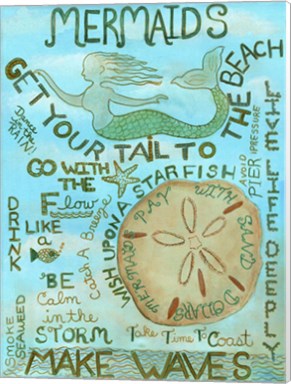 MERMAIDS
GET YOUR TAIL TO THE BEACH
Dance in the RAIN
GO WITH THE Flow
WISH UPON A STARFISH
AVOID PIER PRESSURE
TAKE LIFE DEEPLY
DRINK LIKE A
Catch A Breeze
MERMAIDS PAY WITH SAND DOLLARS
'BE Calm in the STORM
Take Time To Coast
SMOKE SEAWEED
MAKE WAVES